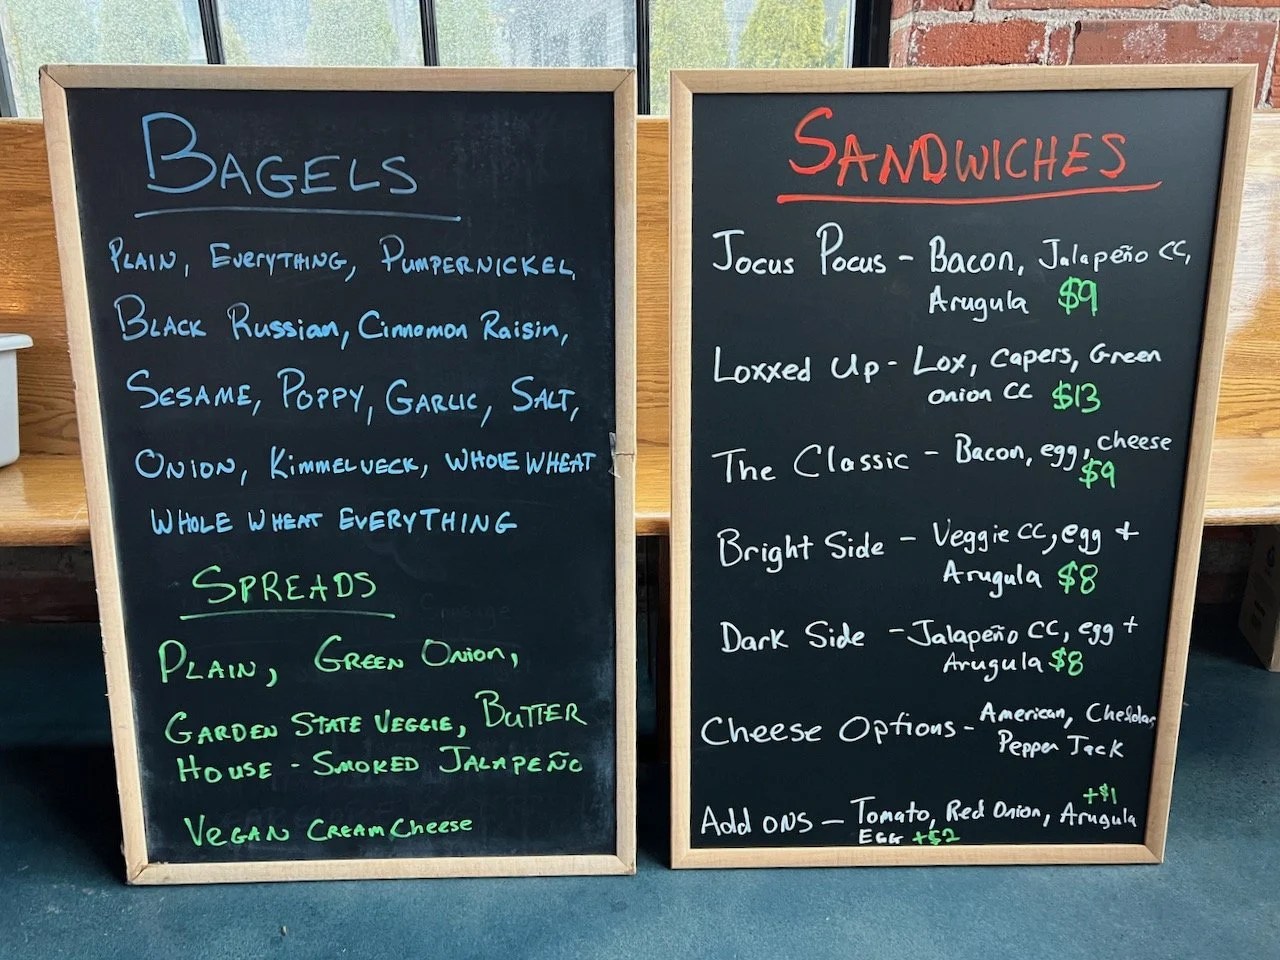 BAGELS
PLAIN, EVERYTHING, PUMPERNICKEL,
BLACK Russian, Cinnamon Raisin,
SESAME, POPPY, GARLIC, SALT,
ONION, Kimmelveck, WHOLE WHEAT
WHOLE WHEAT EVERYTHING
SPREADS
PLAIN, GREEN ONION,
GARDEN STATE VEGGIE, BUTTER
HOUSE - SMOKED JALAPEÑO
VEGAN CREAM Cheese
SANDWICHES
Jocus Pocus - Bacon, Jalapeño CC,
Arugula $9
Loxxed Up - Lox, capers, Green
onion CC $13
The Classic - Bacon, egg, cheese
$9
Bright Side - Veggie CC, egg +
Arugula $8
Dark Side - Jalapeño CC, egg +
Arugula $8
Cheese Options - American, Cheddar,
Pepper Jack
Add ONS - Tomato, Red Onion, Arugula +$1
EGG +$2